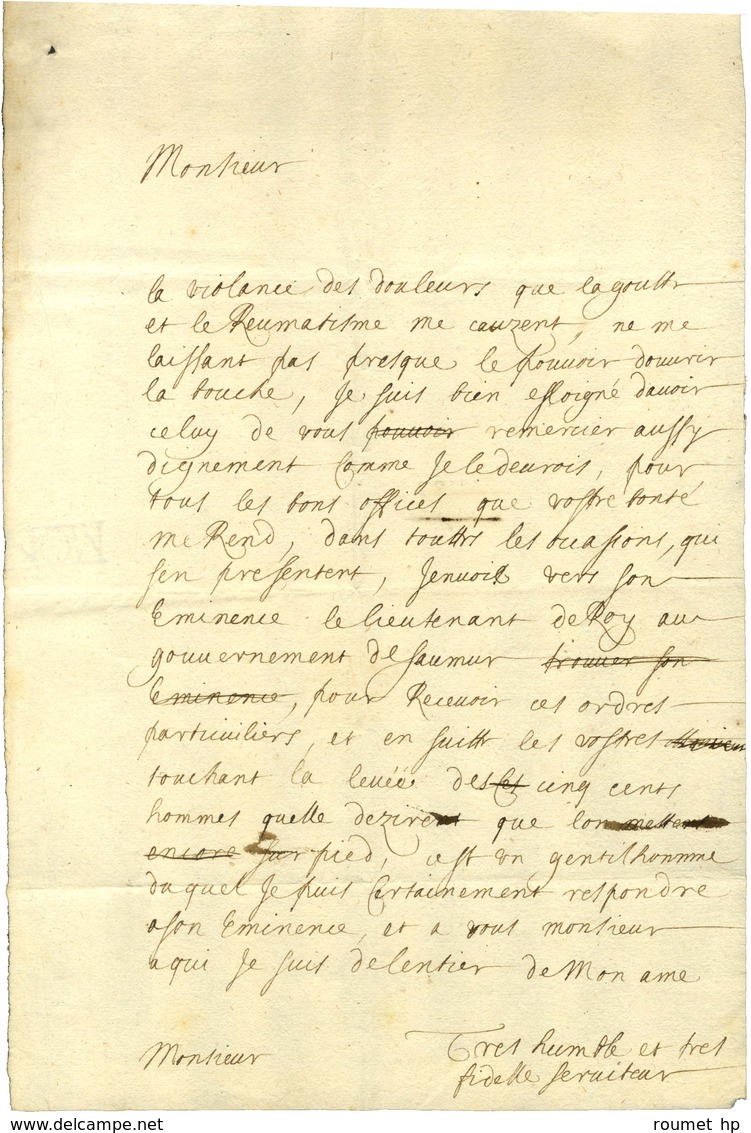 Monsieur
la violance des douleurs que la goutte
et le Reumatisme me cauzent, ne me
laissant pas presque le pouvoir douvrir
la bouche, Je suis bien esloigné davoir
celuy de vous pouvoir remercier aussy
dignement Comme Je le devrois, pour
tous les bons offices que vostre bonté
me Rend, dans touttes les ocasions, qui
sen presentent, Jenvoie vers son
Eminence le lieutenant de Roy au
gouvernement de saumur trouver son
Eminence, pour Recevoir ces ordres
particuliers, et en suitte les vostres
touchant la levée des cinq cents
hommes quelle dezirent que lon mettent
encore sur pied, cest un gentilhomme
duquel Je puis Certainement respondre
a son Eminence, et a vous monsieur
a qui Je suis de lentier de Mon ame
Monsieur
Tres humble et tres
fidelle serviteur
roumet hp